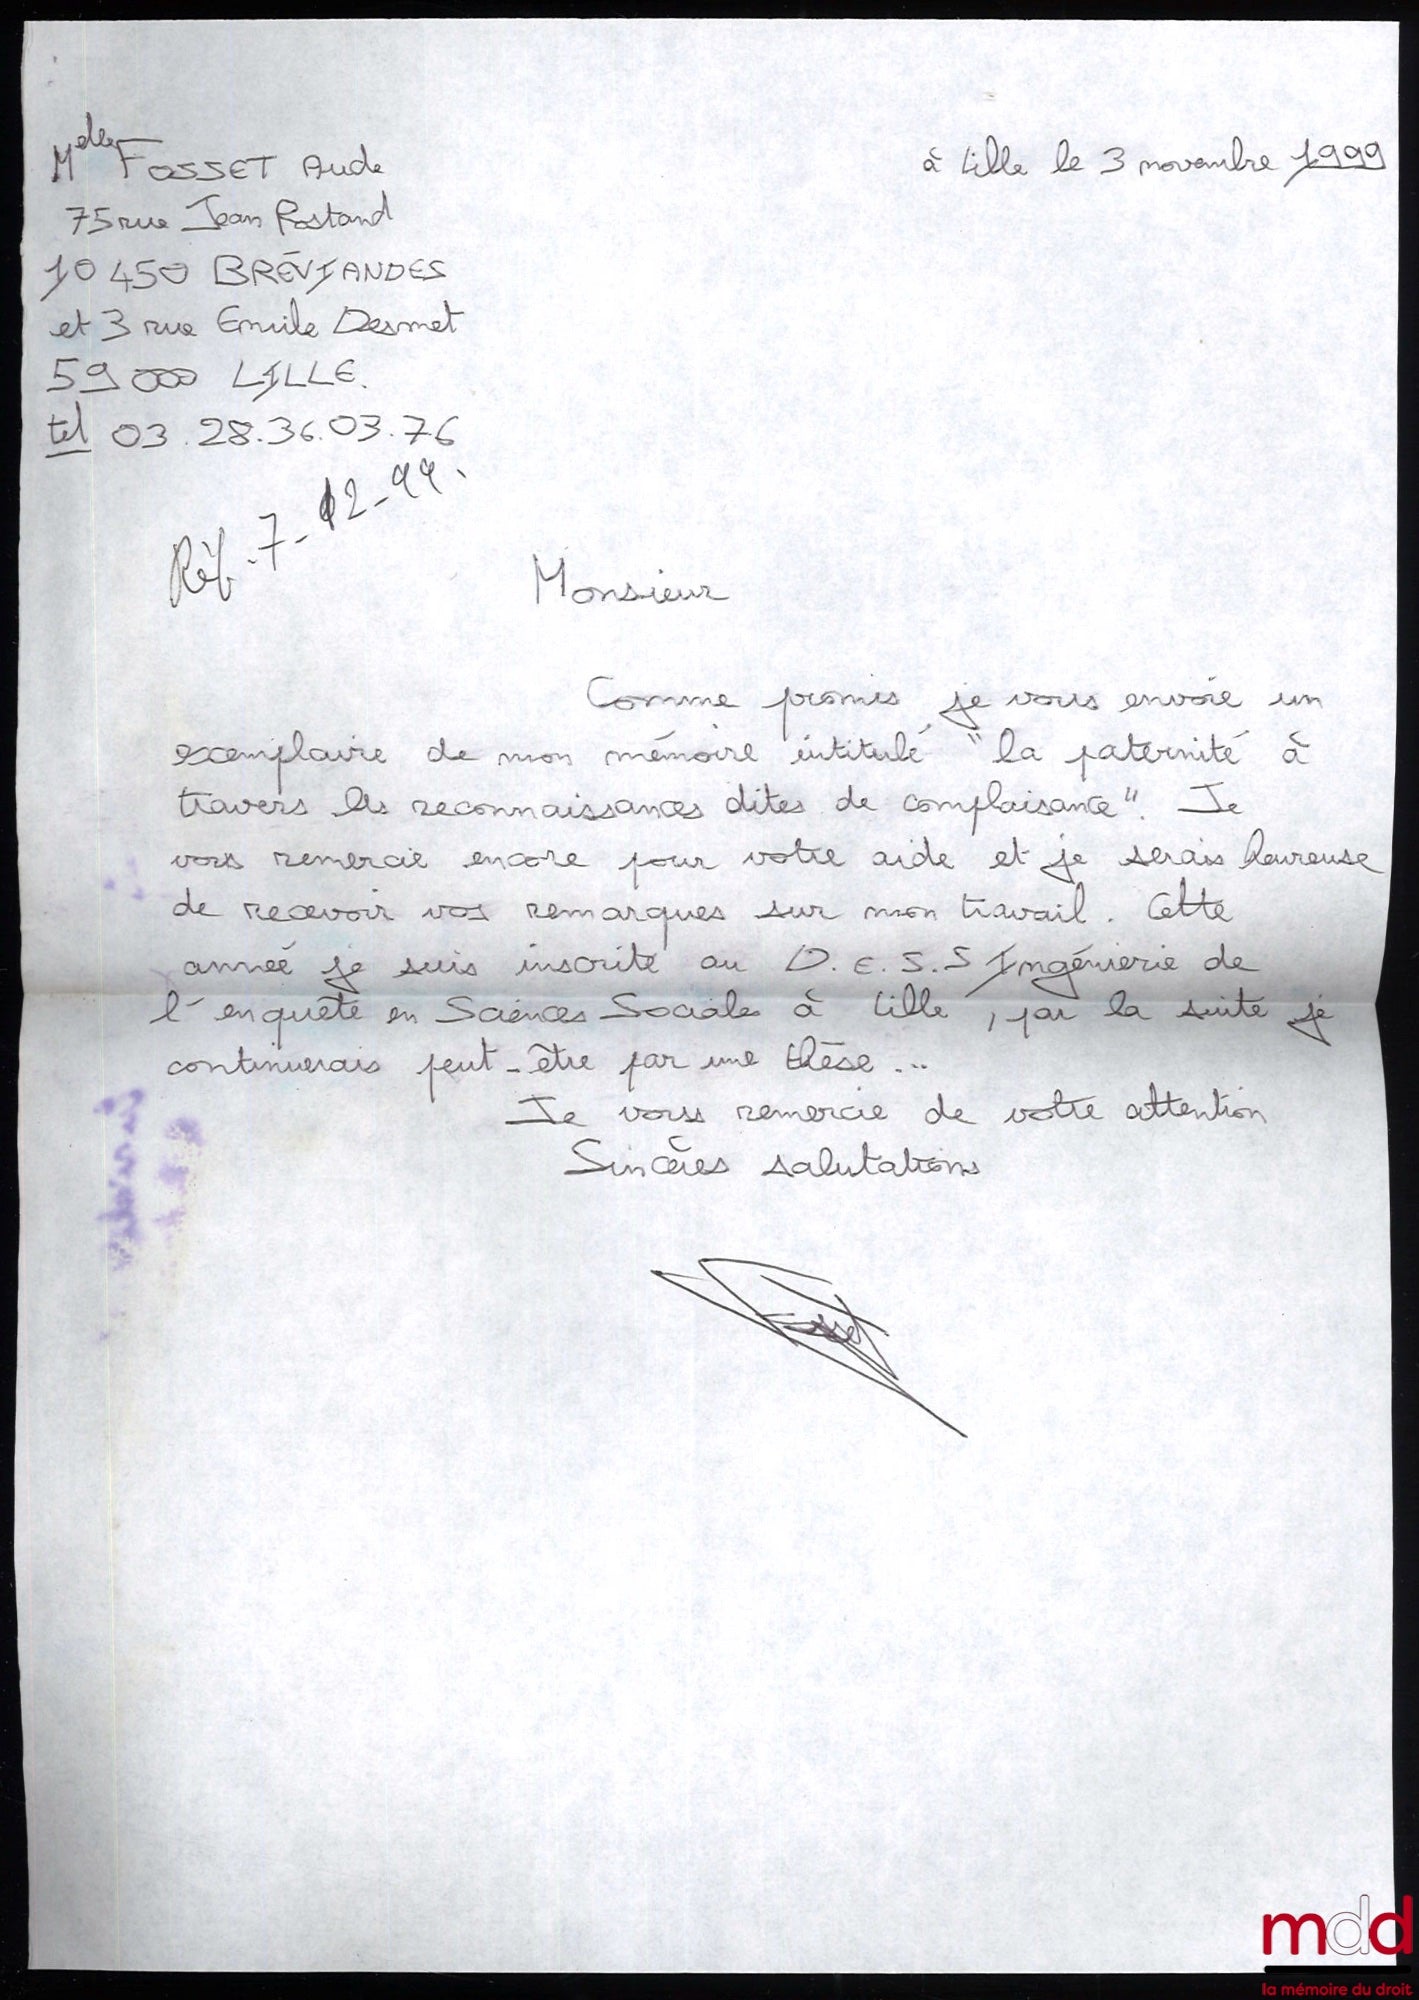 Melle FOSSET Aude
à Lille le 3 novembre 1999
75 rue Jean Rostand
10 450 BRÉVIANDES
et 3 rue Emile Desmet
59 000 LILLE.
tel 03.28.36.03.76
Rép. 7-12-99.
Monsieur
Comme promis je vous envoie un
exemplaire de mon mémoire intitulé "la paternité à
travers les reconnaissances dites de complaisance". Je
vous remercie encore pour votre aide et je serais heureuse
de recevoir vos remarques sur mon travail. Cette
année je suis inscrite au D.E.S.S Ingénierie de
l'enquête en Sciences Sociales à Lille, par la suite je
continuerais peut-être par une thèse...
Je vous remercie de votre attention
Sincères salutations
Fosset
mdd
la mémoire du droit